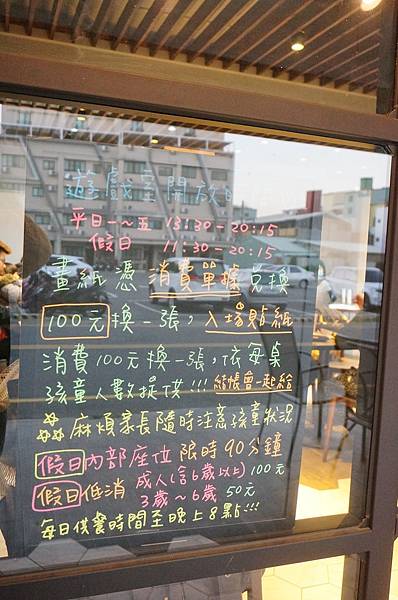 遊戲室開放時
平日一~五 13:30-20:15
假日 11:30-20:15
畫紙憑消費單據兌換
100元換一張，入場貼紙
消費100元換一張，依每桌
孩童人數提供!!! 結帳會一起給
麻煩家長隨時注意孩童狀況
假日內部座位限時90分鐘
假日低消 成人(含6歲以上)100元
3歲~6歲 50元
每日供餐時間至晚上8點!!!